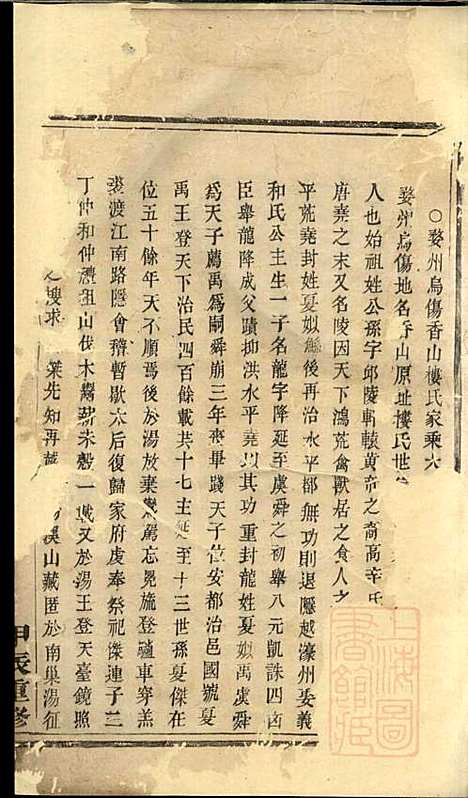 ○婺州烏傷香山樓氏家乘六
婺州烏傷地名香山原址樓氏世
人也始祖姓公孫字邱陵軒轅黃帝之裔高辛氏
唐堯之末又名陵因天下鴻荒禽獸居之食人之
平荒堯封姓夏姒鯀後再治水平都無功則退隱越濠州娄義
和氏公主生一子名龍字降延至虞舜之初舉八元凱誅四凶
臣舉龍降成父蹟抑洪水平堯以其功重封龍姓夏姒禹虞舜
為天子薦禹為嗣舜崩三年喪畢踐天子位安都治邑國號夏
禹王登天下治民四百餘載共十七主延至十三世孫夏傑在
位五十餘年天不順焉後於湯放棄鸞駕忘冕旒登車穿羔
裘渡江南路隱會稽暫歇六后復歸家府虔奉祭祀傑連子三
丁仲和仲禮祖山伐木薪未殺一城又於湯王登天臺鏡照
之搜求 葉先知再 溪山藏匿於南巢湯征
甲辰重修
上海圖書館藏